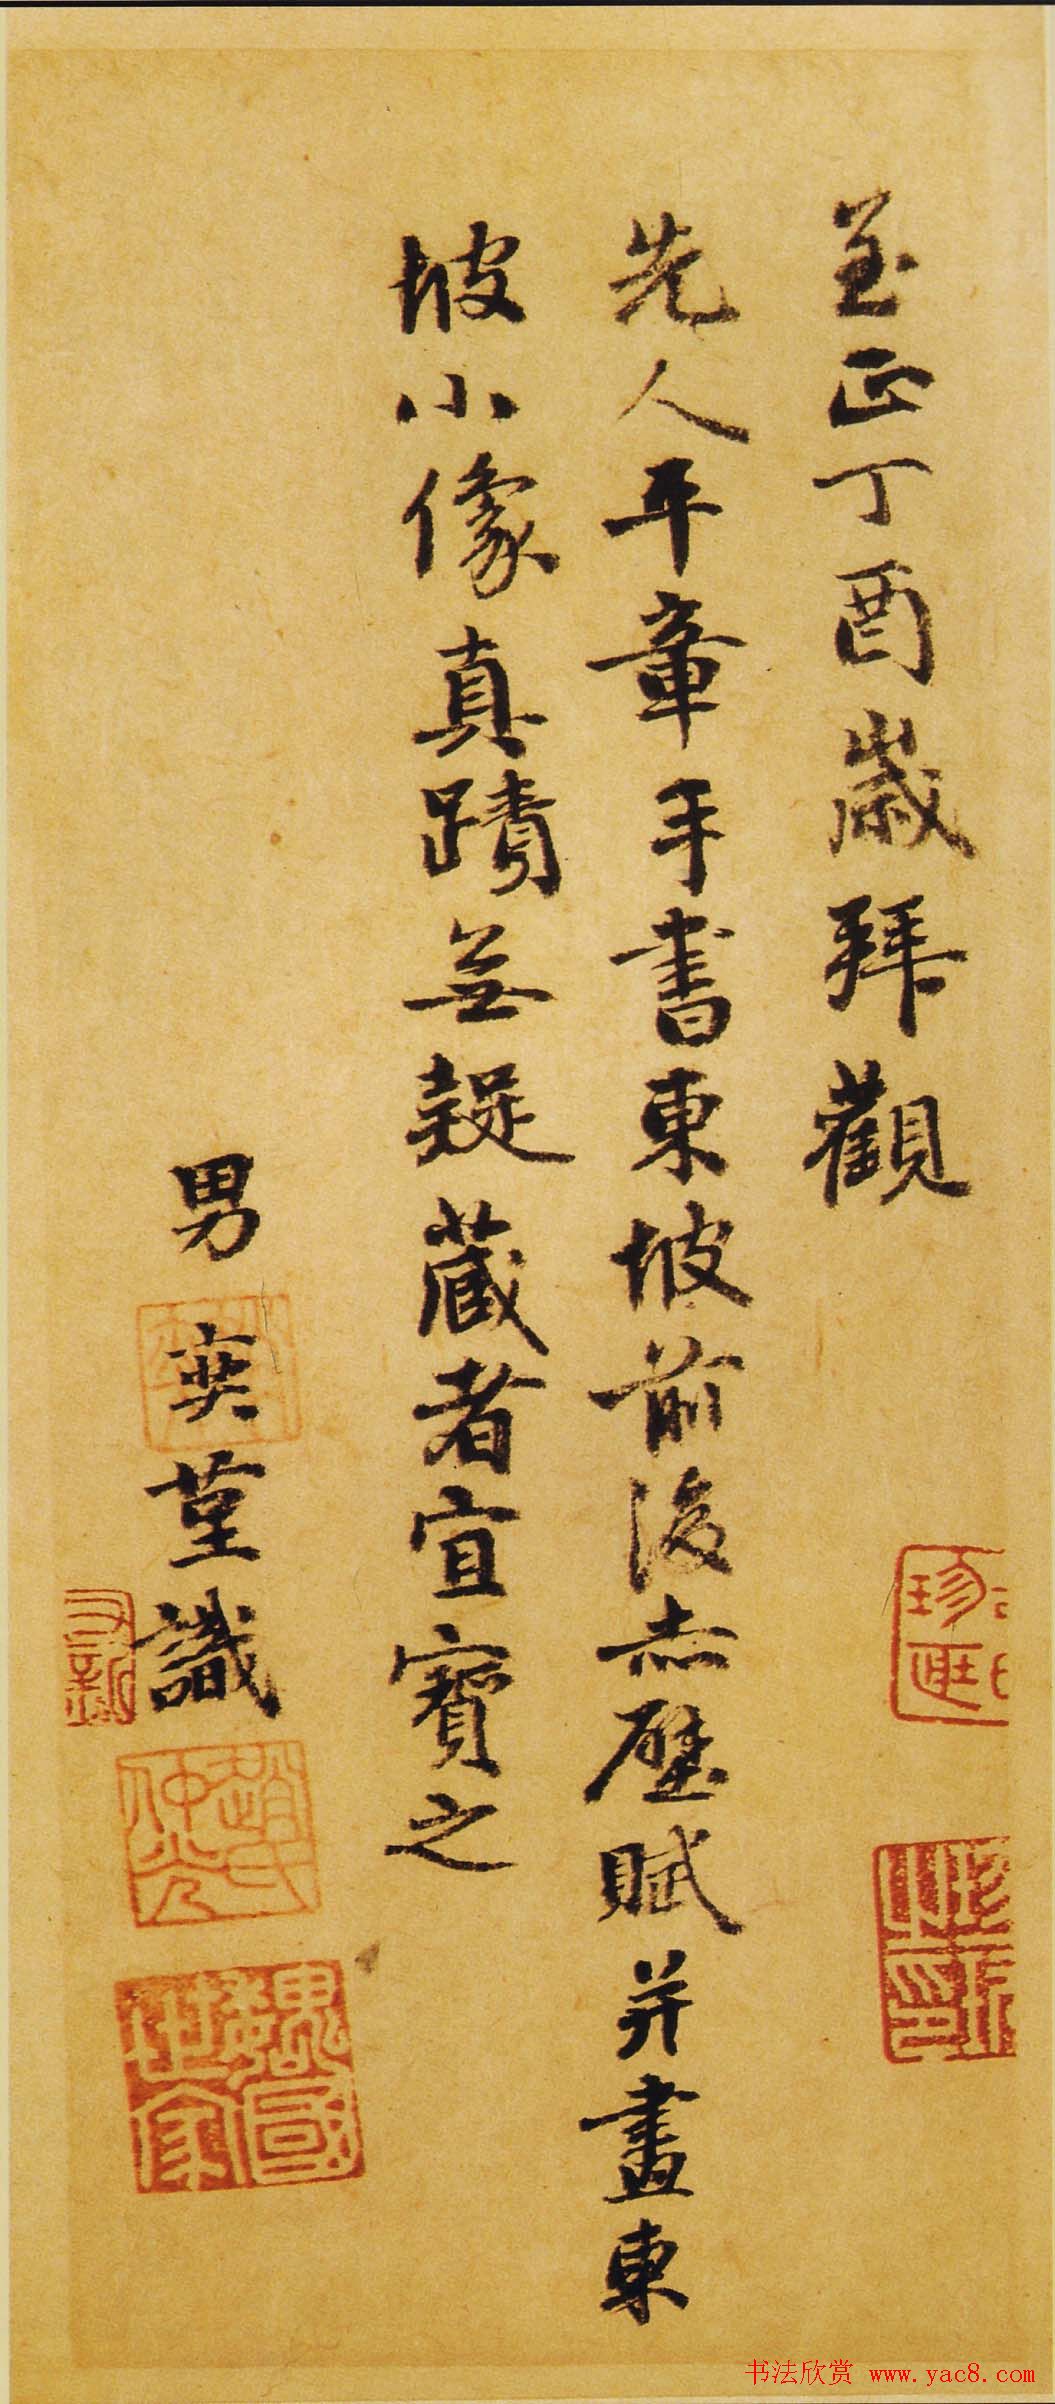 至正丁酉歲拜觀
先人平章手書東坡前後赤壁賦并畫東
坡小像真蹟無疑藏者宜寶之
男奕謹識
趙氏仲光
魏國世家
书法欣赏 www.yac8.com